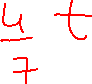 4/7 t